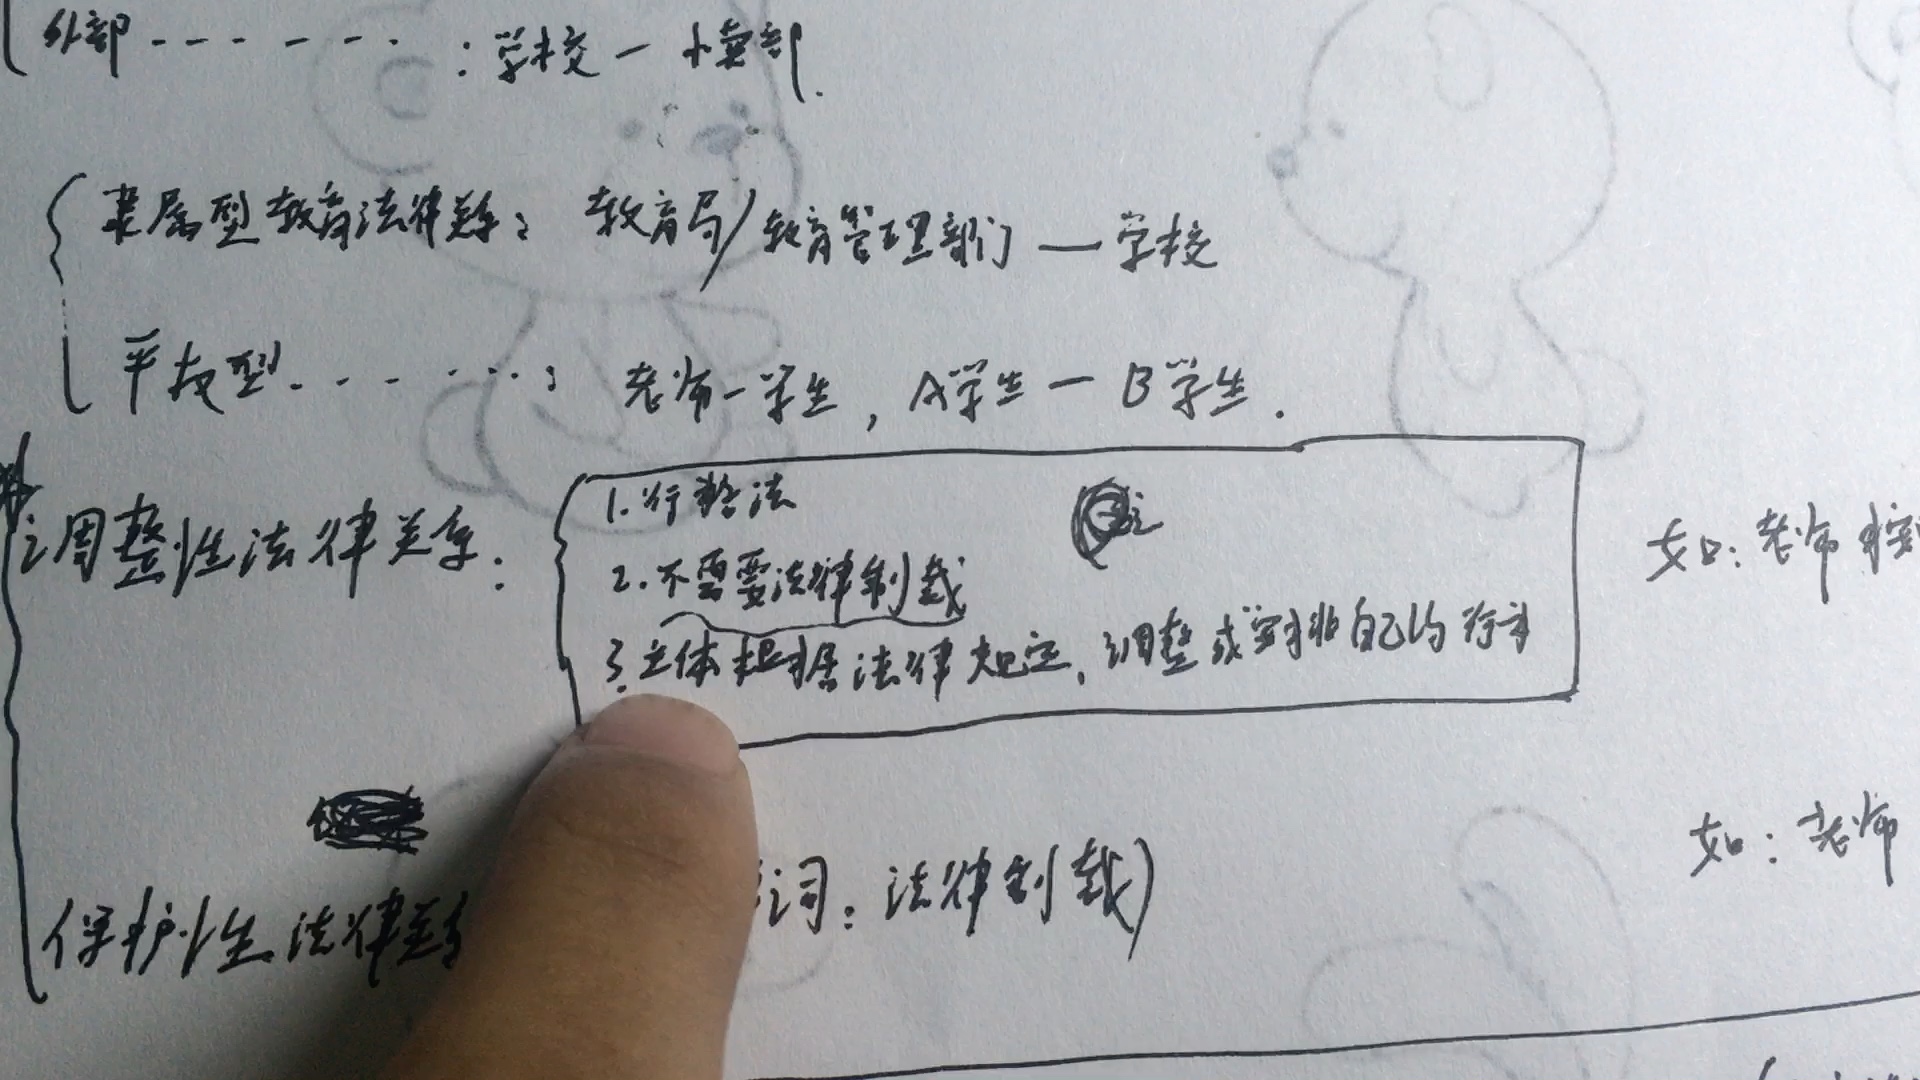 外部------:学校一小卖部.
隶属型教育法律关系: 教育局/教育管理部门—学校
平权型------: 老师-学生,A学生-B学生.
调整性法律关系:
1.行
2.不需要法律制裁
3.主体根据法律规定,调整或 自己的行为
如:老师
保护性法律关系
词:法律制裁)
如:老师